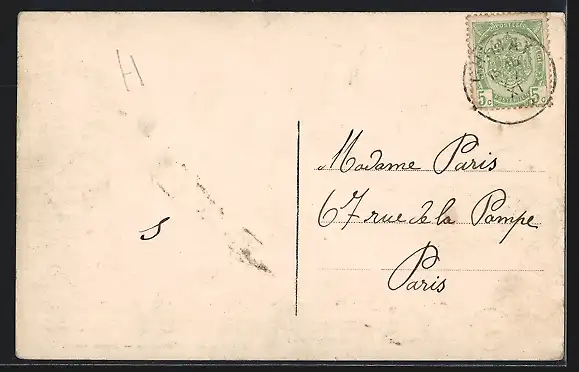 H
5c 5c
Madame Paris
67 rue de la Pompe
Paris
S